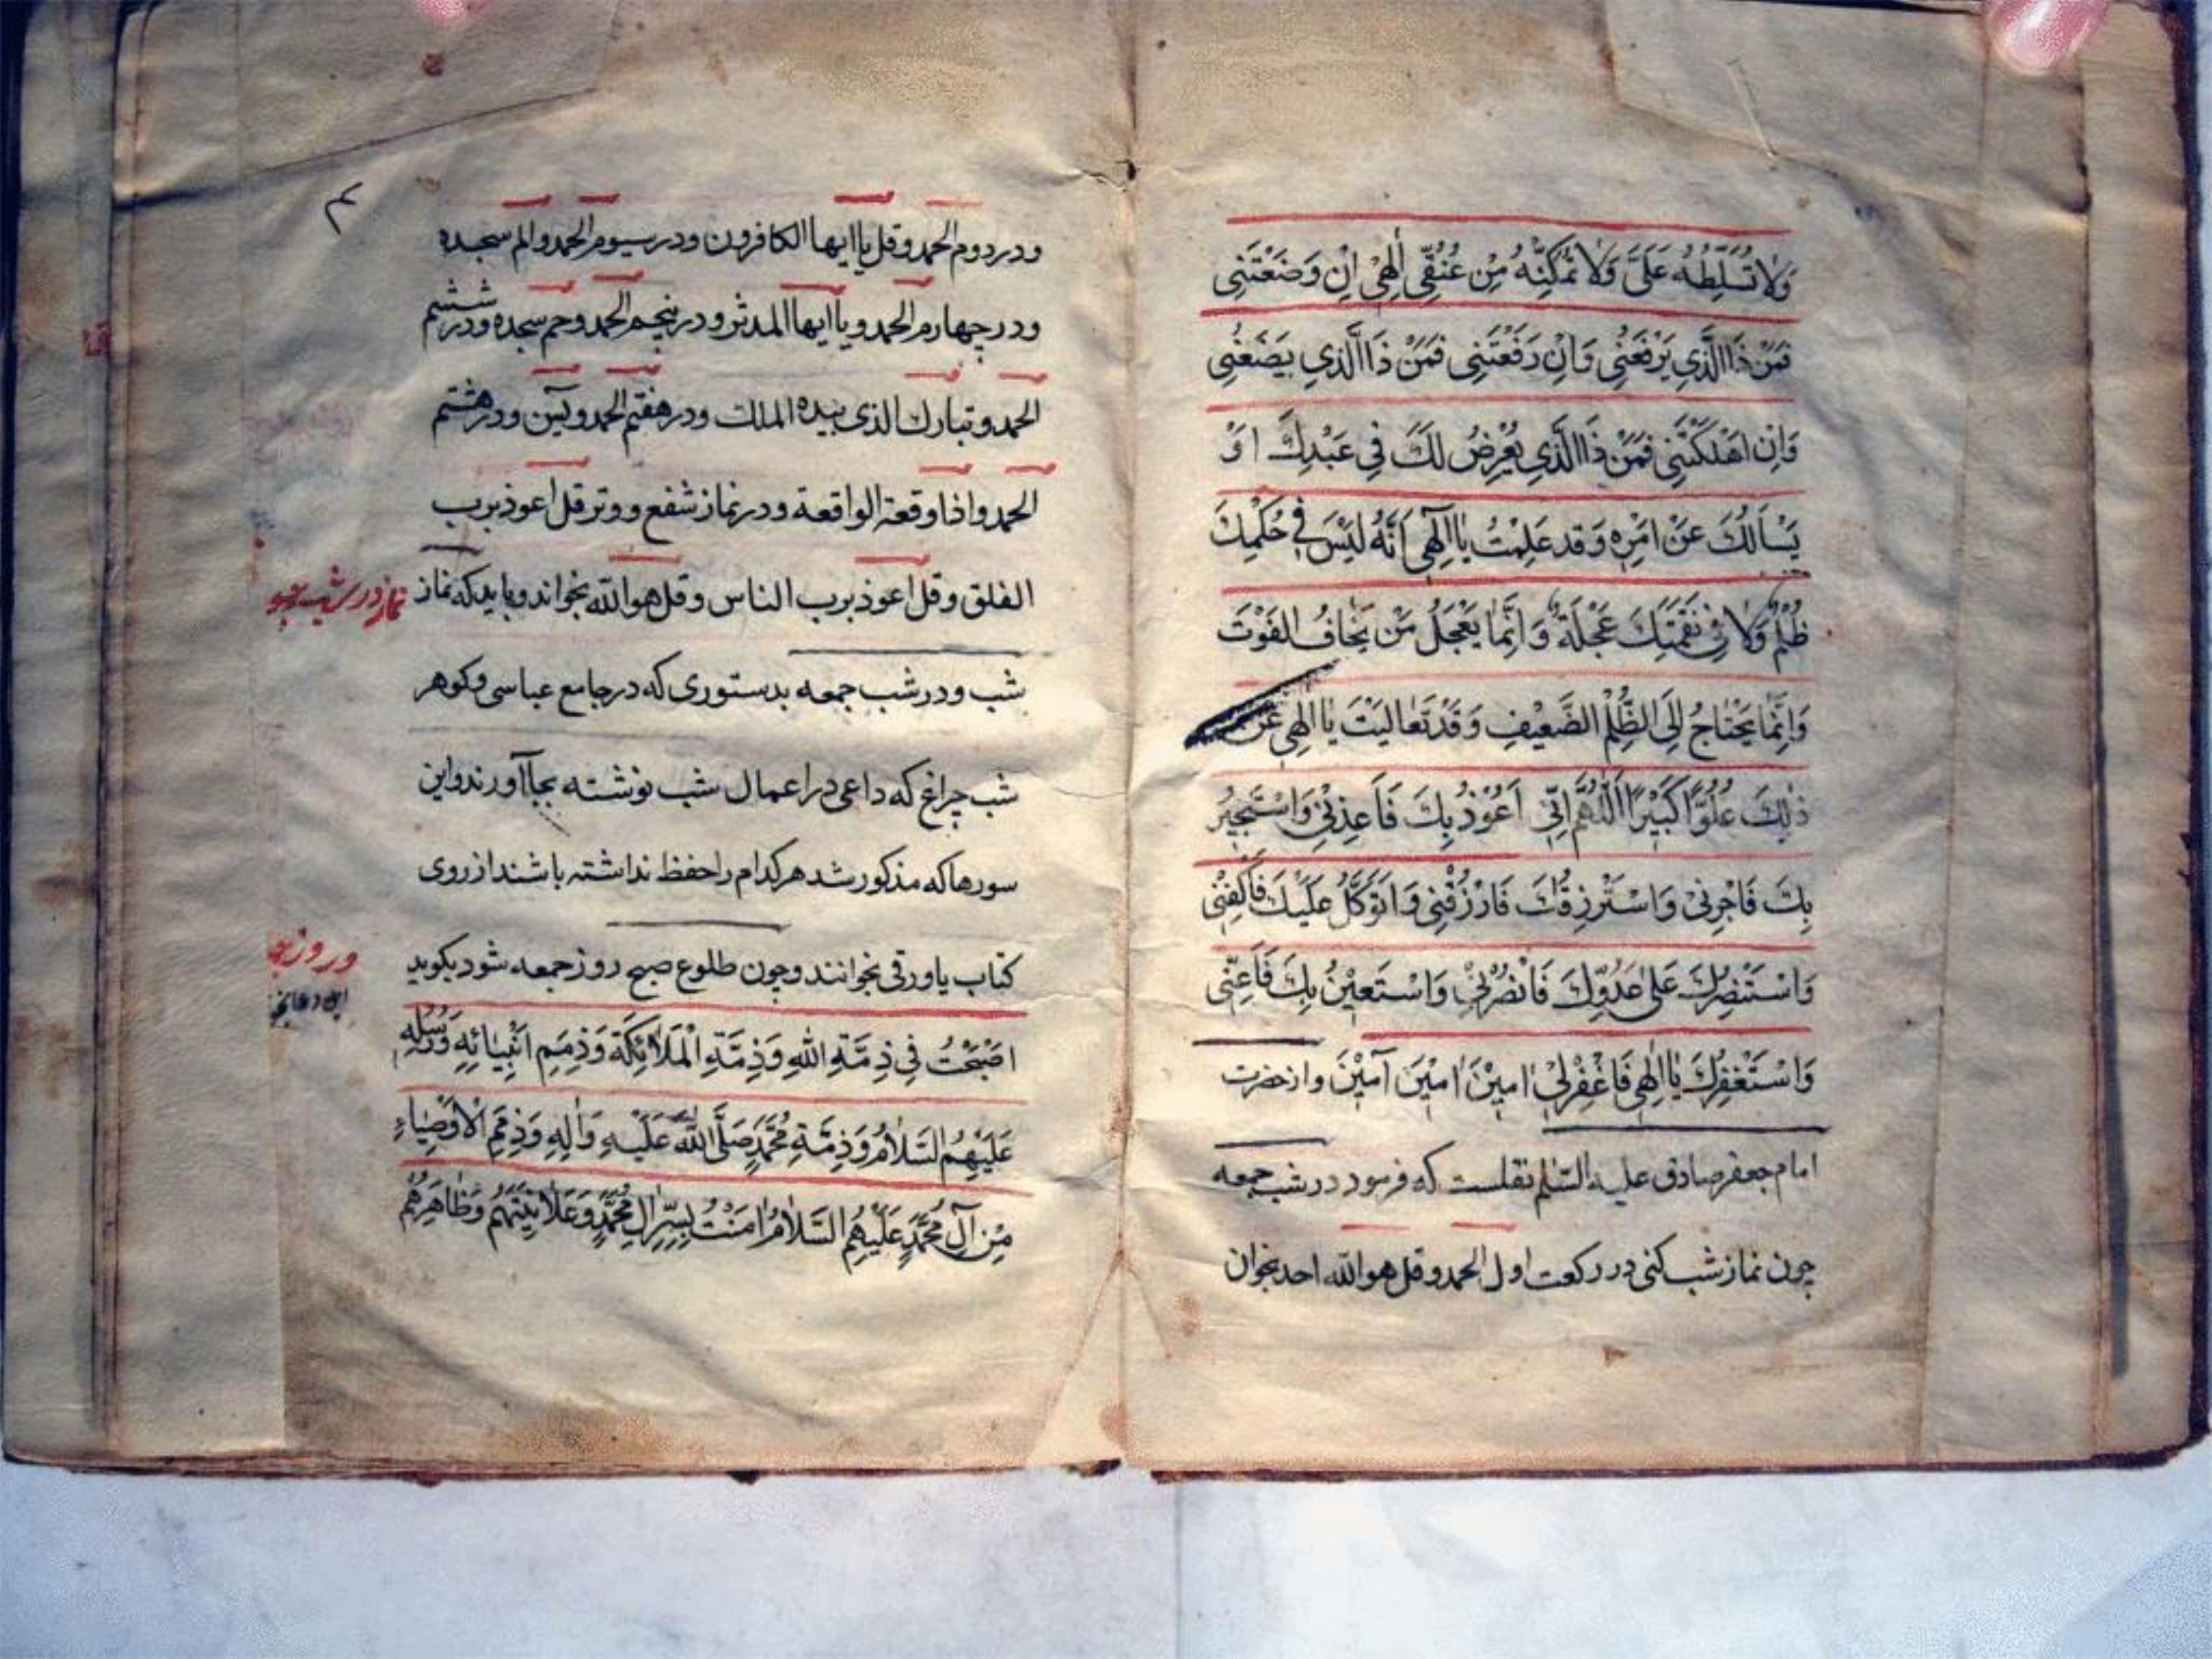 وَلَا تُسَلِّطْهُ عَلَىَّ وَلَا تُمَكِّنْهُ مِنْ عُنُقِي اِلٰهِىْ اِنْ وَضَعْتَنِى
فَمَنْ ذَا الَّذِي يَرْفَعُنِي وَاِنْ رَفَعْتَنِى فَمَنْ ذَا الَّذِي يَضَعُنِي
وَاِنْ اَهْلَكْتَنِى فَمَنْ ذَا الَّذِي يَعْرِضُ لَكَ فِي عَبْدِكَ اَوْ
يَسْاَلُكَ عَنْ اَمْرِهِ وَقَد عَلِمْتُ يَا اِلٰهِى اَنَّهُ لَيْسَ فِي حُكْمِكَ
ظُلْمٌ وَلَا فِي نَقِمَتِكَ عَجَلَةٌ وَاِنَّمَا يَعْجَلُ مَنْ يَخَافُ الفَوْتَ
وَاِنَّمَا يَحْتَاجُ اِلَى الظُّلْمِ الضَّعِيْفِ وَقَدْ تَعَالَيْتَ يَا اِلٰهِى عَنْ
ذٰلِكَ عُلُوًّا كَبِيْرًا اَللّٰهُمَّ اِنِّي اَعُوْذُ بِكَ فَاَعِذْنِي وَاَسْتَجِيْرُ
بِكَ فَاَجِرْنِىْ وَاَسْتَرْزِقُكَ فَارْزُقْنِى وَاَتَوَكَّلُ عَلَيْكَ فَاكْفِنِى
وَاَسْتَنْصِرُكَ عَلٰى عَدُوِّكَ فَانْصُرْنِي وَاَسْتَعِيْنُ بِكَ فَاَعِنِّى
وَاَسْتَغْفِرُكَ يَا اِلٰهِى فَاغْفِرْلِيْ اٰمِيْنَ اٰمِيْنَ آمِيْنَ واز حضرت
امام جعفر صادق عليه السّلم نقلست كه فرمود در شب جمعه
چون نماز شب كنى در ركعت اول الحمد وقل هو اللّه احد بخوان
ودر دوم الحمد وقل يا ايها الكافرون ودر سيوم الحمد والم سجده
ودر چهارم الحمد ويا ايها المدثر ودر پنجم الحمد وحم سجده ودر ششم
الحمد وتبارك الذى بيده الملك ودر هفتم الحمد ويس ودر هشتم
الحمد واذا وقعة الواقعة ودر نماز شفع ووتر قل اعوذ برب
الفلق وقل اعوذ برب الناس وقل هو اللّه بخواند وبايد كه نماز
نماز در شب
شب ودر شب جمعه بدستورى كه در جامع عباسى وكوهر
شب چراغ كه داعى در اعمال شب نوشته بجا آورند واين
سورها كه مذكور شد هر كدام را حفظ نداشته باشند از روى
كتاب يا ورقى بخوانند وچون طلوع صبح روز جمعه شود بكويد
وروز
اين دعا
اَصْبَحْتُ فِي ذِمَّةِ اللّٰهِ وَذِمَّةِ الْمَلَائِكَةِ وَذِمَمِ اَنْبِيَائِهِ وَرُسُلِهِ
عَلَيْهِمُ السَّلَامُ وَذِمَّةِ مُحَمَّدٍ صَلَّى اللّٰهُ عَلَيْهِ وَاٰلِهِ وَذِمَمِ الْاَوْصِيَاءِ
مِنْ آلِ مُحَمَّدٍ عَلَيْهِمُ السَّلَامُ اٰمَنْتُ بِسِرِّ اٰلِ مُحَمَّدٍ وَعَلَانِيَتِهِمْ وَظَاهِرِهُمْ